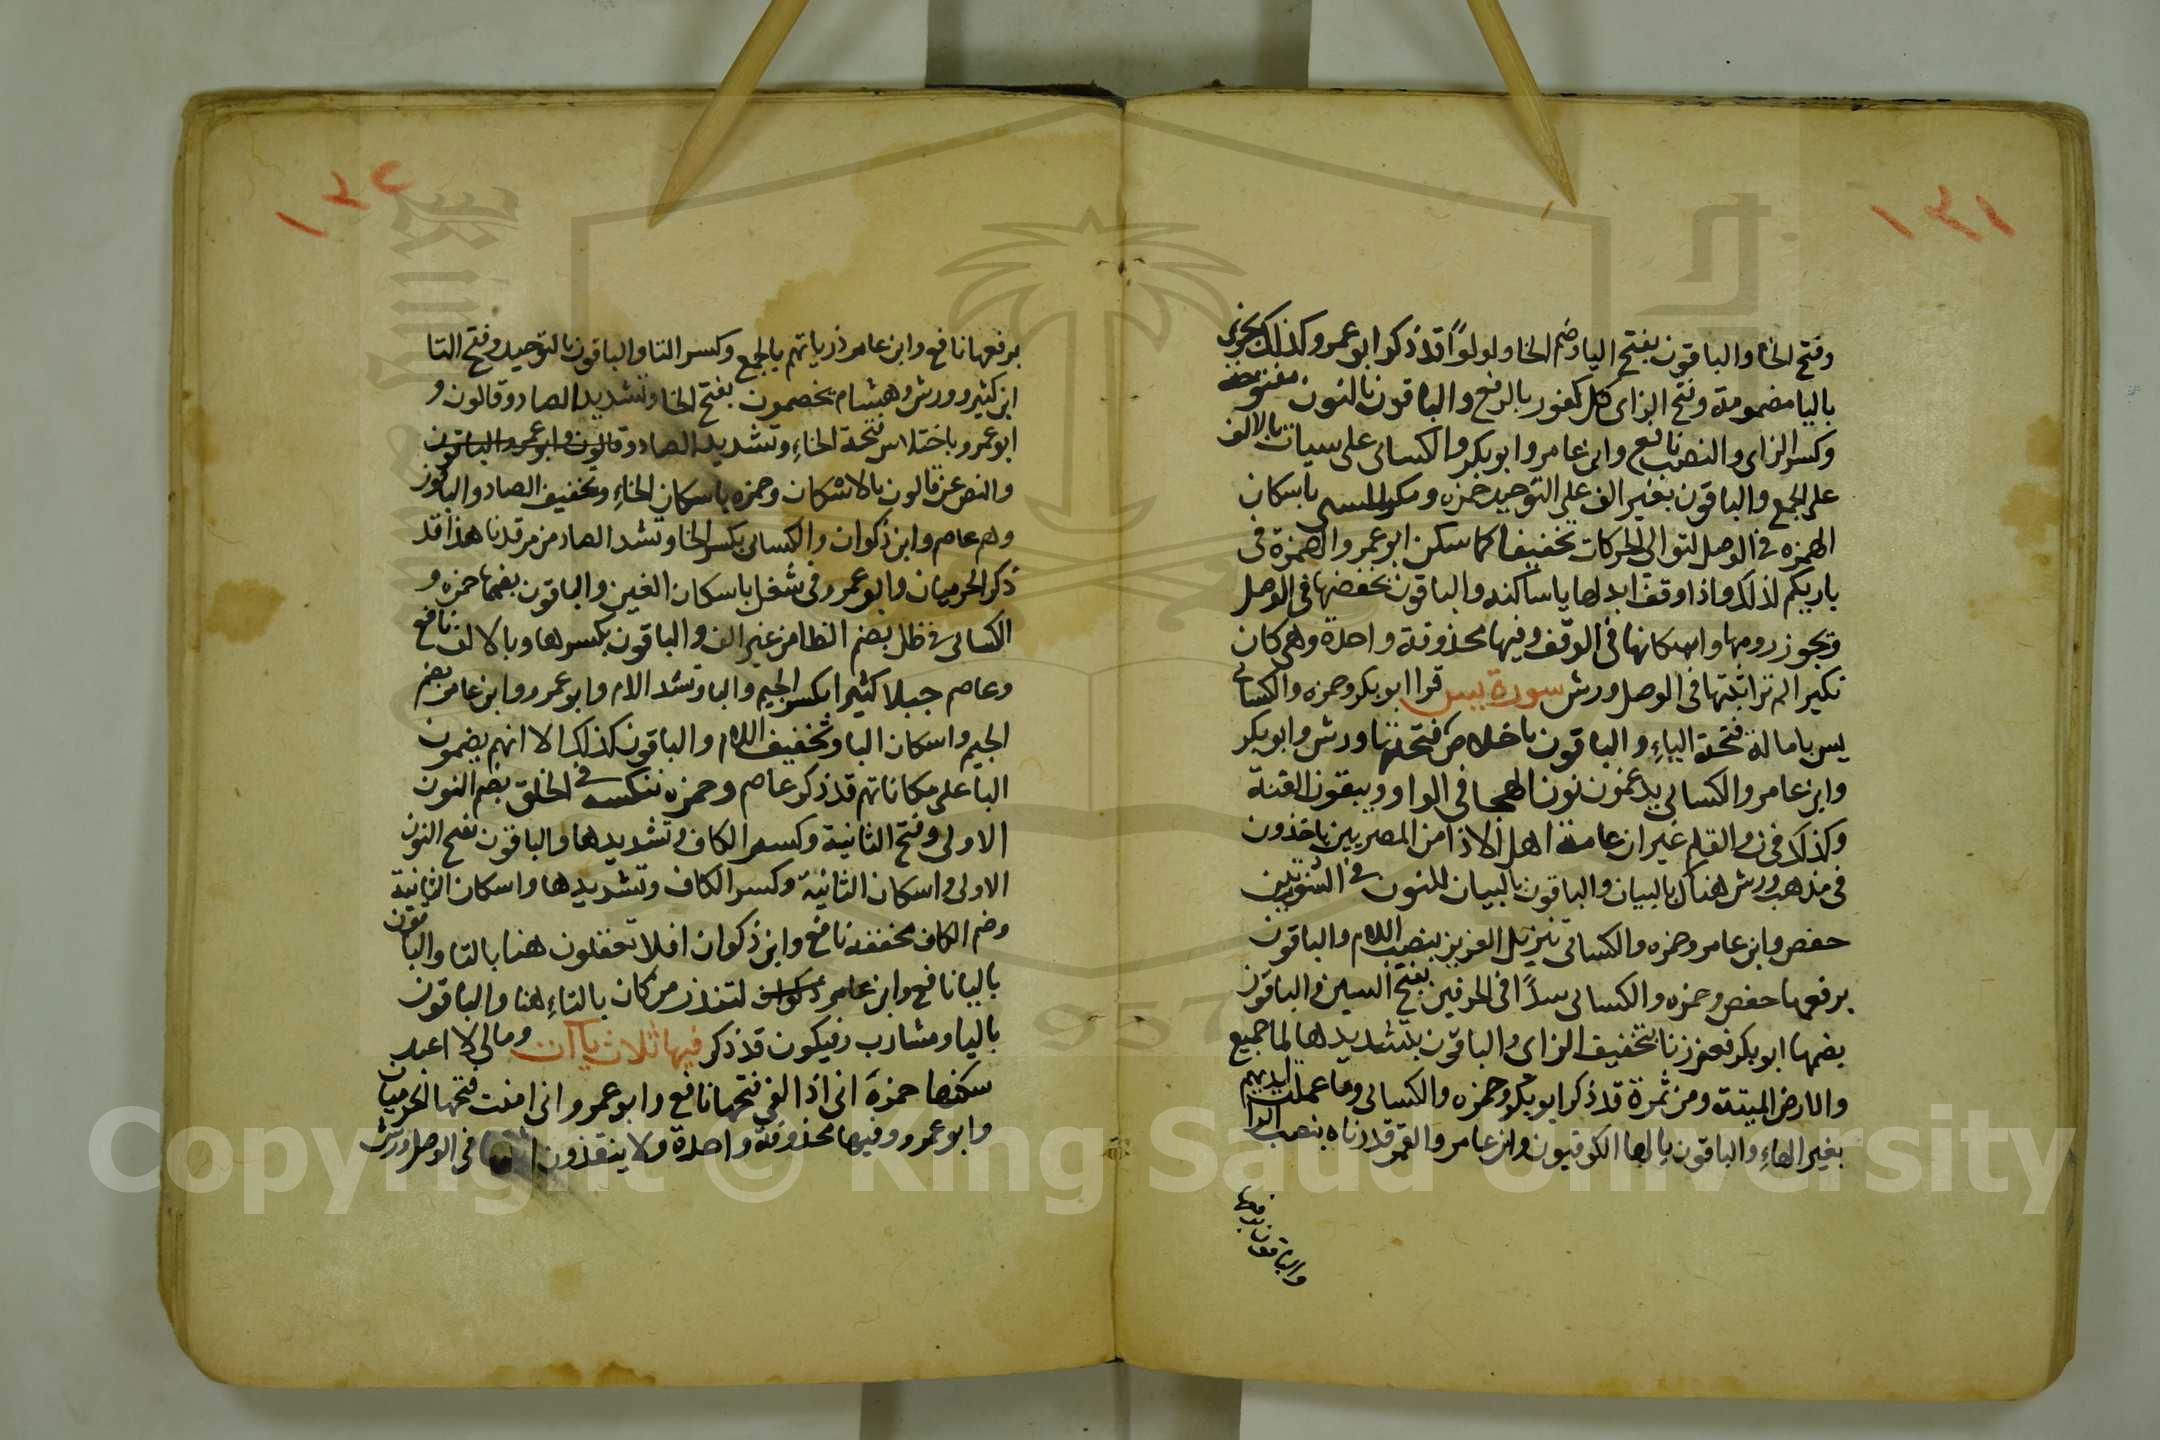 ١٣١
وفتح الخا والباقون بفتح اليا وضم الخا ولولوًا قد ذكر ابو عمرو كذلك نجزى
باليا مضمومة وفتح الزاى كل كفور بالرفع والباقون بالنون مفتوحة
وكسر الزاى والنصب نافع وابن عامر وابو بكر والكسائى على سيات بالالف
على الجمع والباقون بغير الف على التوحيد حمزه ومكر السىى باسكان
الهمزه فى الوصل لتوالى الحركات تخفيفا كما سكن ابو عمرو الهمزة فى
باريكم لذلك واذا وقف ابدلها يا ساكنه والباقون بخفضها فى الوصل
وتجوز رومها واسكانها فى الوقف وفيها محذوفة واحدة وهى كان
نكير الم تر اثبتها فى الوصل ورش سورة يس قرا ابو بكر وحمزه والكسائى
يس بامالة فتحة الياءِ والباقون باخلاص فتحتها ورش وابو بكر
وابن عامر والكسائى يدغمون نون الهجا فى الواو ويبقون الغنة
وكذلك فى ن والقلم غير ان عامة اهل الاذا من المصريين ياخذون
فى مذهب ورش هناك بالبيان والباقون بالبيان للنون فى السورتين
حفص وابن عامر وحمزه والكسائى تنزيل العزيز بنصب اللام والباقون
برفعها حفص وحمزه والكسائى سدًا فى الحرفين بفتح السين والباقون
بضمها ابو بكر فعززنا بتخفيف الزاى والباقون بتشديدها لما جميع
والارض الميتة ومن ثمرة قد ذكر ابو بكر وحمزه والكسائى وما عملت ايديهم
بغير الهاءِ والباقون بالها الكوفيون وابن عامر والقمر قدرناه بنصب الرا
والباقون برفعها
١٣٢
برفعها نافع وابن عامر ذرياتهم بالجمع وكسر التا والباقون بالتوحيد وفتح التا
ابن كثير وورش وهشام يخصمون بفتح الخا وتشديد الصاد وقالون و
ابو عمرو باختلاس فتحة الخاءِ وتشديد الصاد وقالون وابو عمرو والباقون
والنص عن قالون بالاسكان وحمزه باسكان الخاءِ وتخفيف الصاد والباقون
وهم عاصم وابن ذكوان والكسائى بكسر الخا وتشد الصاد من مرقدنا هذا قد
ذكر الحرميان وابو عمرو فى شغل باسكان الغين والباقون بضمها حمزه و
الكسائى فى ظلل بضم الظا من غير الف والباقون بكسرها وبالالف نافع
وعاصم جبلا كثيرا بكسر الجيم والبا وتشد الام وابو عمرو وابن عامر بضم
الجيم واسكان البا وتخفيف اللام والباقون كذلك الا انهم يضمون
البا على مكاناتهم قد ذكر عاصم وحمزه ننكسه فى الخلق بضم النون
الاولى وفتح الثانية وكسر الكاف وتشديدها والباقون بفتح النون
الاولى واسكان الثانية وكسر الكاف وتشديدها واسكان الثانية
وضم الكاف مخففه نافع وابن ذكوان افلا تعقلون هنا بالتا والباقون
باليا نافع وابن عامر ذكوان لتنذر من كان بالتاءِ هنا والباقون
باليا ومشارب وفيكون قد ذكر فيها ثلاث ياآت ومالى لا اعبد
سكنها حمزة انى اذا لفى فتحها نافع وابو عمرو انى امنت فتحها الحرميان
وابو عمرو وفيها محذوفة واحدة ولا ينقذون فى الوصل ورش